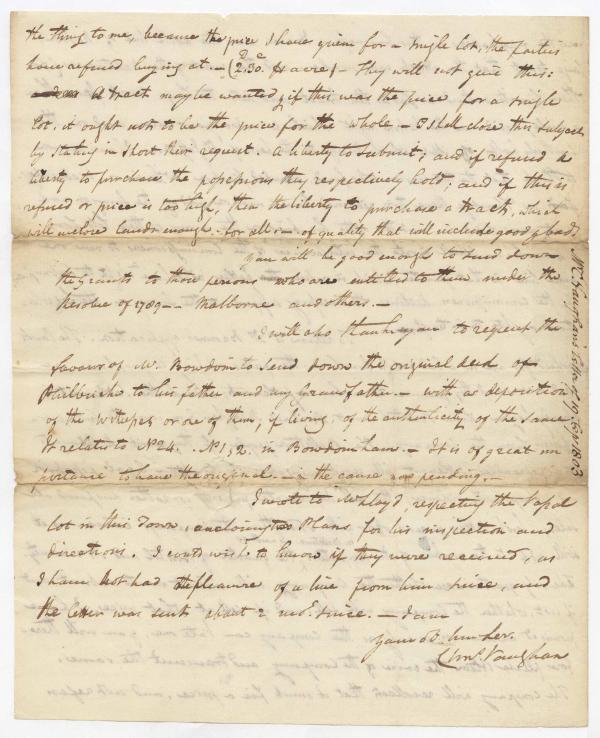 the thing to me, because the price I have given for a single lot, the parties
have refused buying at — (2.30. ⅌ acre) — They will not give this:
A tract may be wanted, & if this was the price for a single
lot, it ought not to be the price for the whole — I shall close this subject
by stating in short their request. A liberty to submit; and if refused a
liberty to purchase the possessions they respectively hold; and if this is
refused or price is too high, then the liberty to purchase a tract, which
will inclose lands enough for all: — of quality that will include good & bad,
you will be good enough to send down
the grants to those persons who are entitled to them under the
Resolve of 1789 — Malborne and others. —
I will also thank you to request the
favour of Mr. Bowdoin to send down the original deed of
Philbricks to his father and my Grandfather — with a deposition
of the witnesses or one of them, if living, of the authenticity of the same
It relates to No 24. No 1, 2. in Bowdoinham. — It is of great im
portance to have the original — in the cause now pending. —
I wrote to Mr Lloyd, respecting the
lot in this Town, enclosing two Plans for his inspection and
directions. I could wish to know if they were received, as
I have not had the pleasure of a line from him since, and
the letter was sent about 2 mos. since. — I am
your ob. hum. ser.
Chas. Vaughan
Mr C Vaughans letter 19 1803